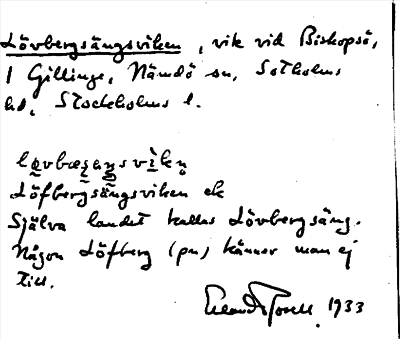 Lövbergsängsviken, vik vid Biskopsö,
1 Gillinge, Nämdö sn, Sotholms
hd, Stockholms l.
Löfbergsängsviken ek
Själva landet kallas Lövbergsäng.
Någon Löfberg (pn) känner man ej
till.
1933